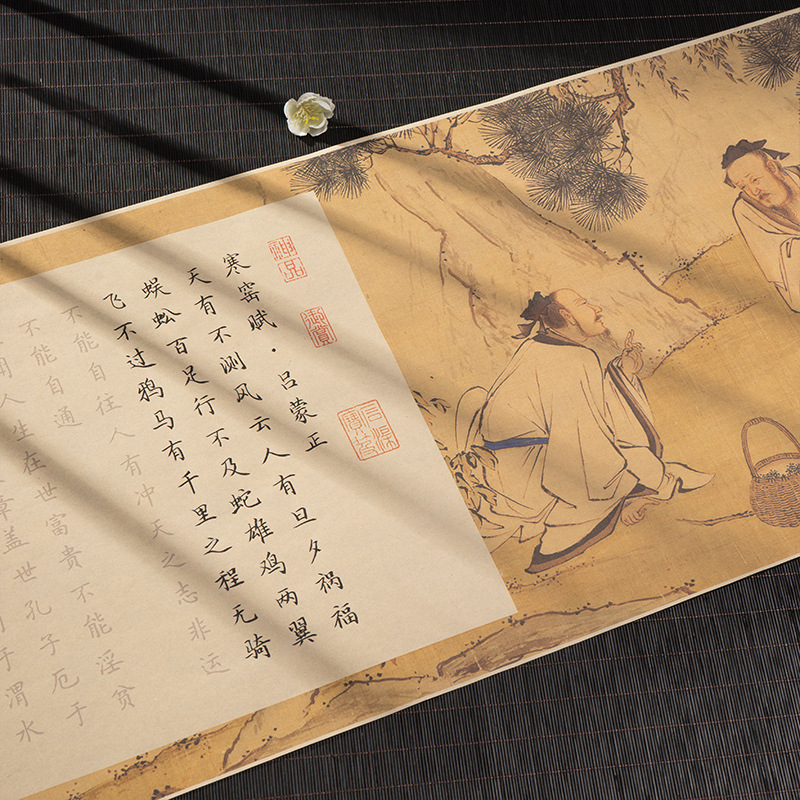 神品
御赏
寒窑赋·吕蒙正
天有不测风云人有旦夕祸福
蜈蚣百足行不及蛇雄鸡两翼
飞不过鸦马有千里之程无骑
不能自往人有冲天之志非运
不能自通
人生在世富贵不能淫贫
章盖世孔子厄于
于渭水